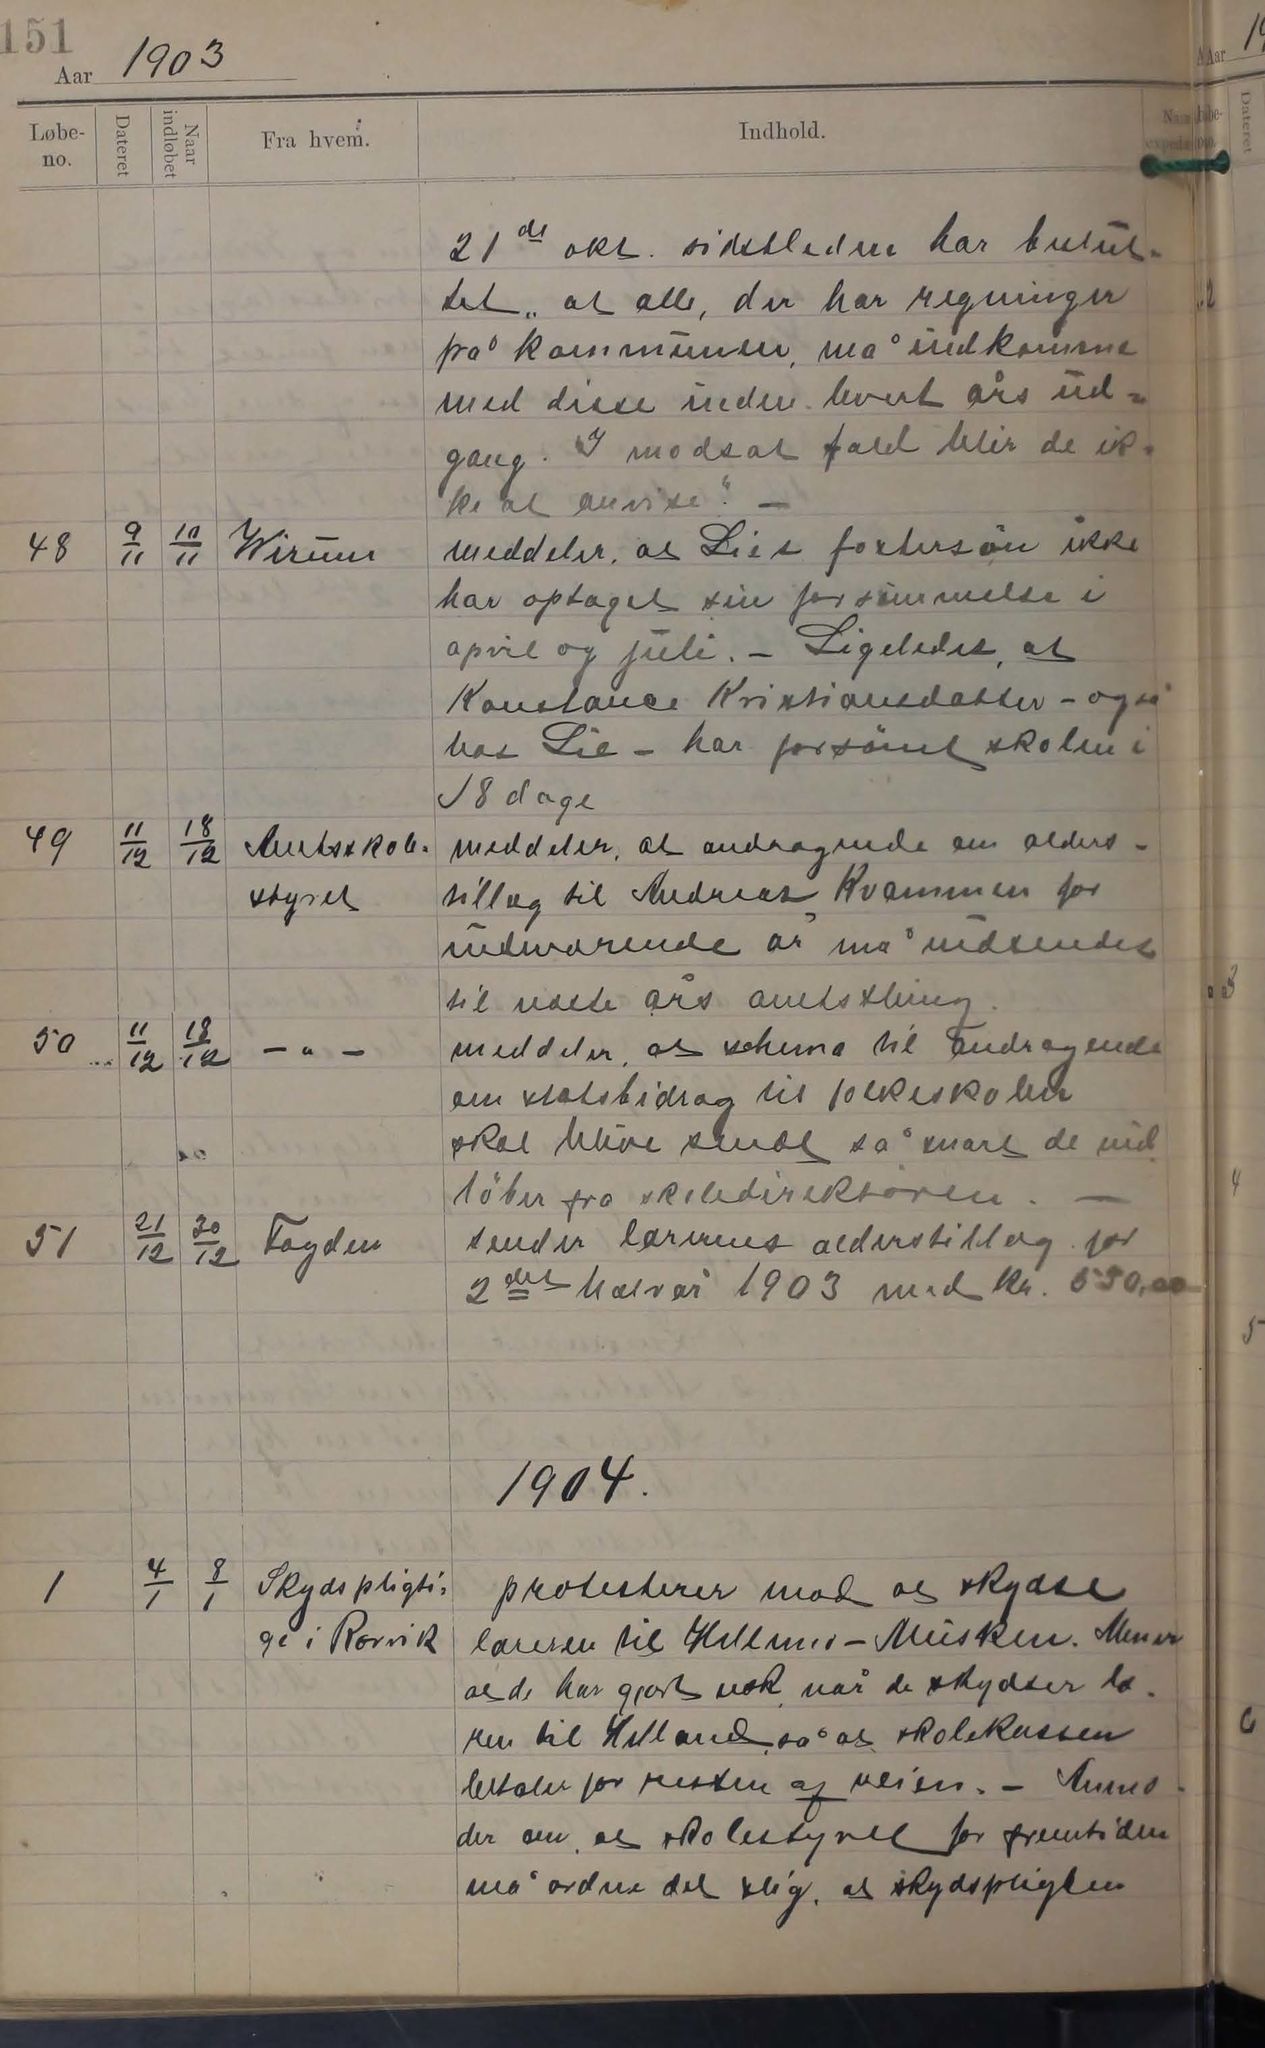 151
Aar 1903
Løbe-no. Dateret Naar indløbet Fra hvem. Indhold.
21de okt. sidstleden har beslut-
tet „at alle, der har regninger
på kommunen, må indkomme
med disse inden hvert års ud-
gang. I modsat fald blir de ik-
ke at anvise". —
48 9/11 10/11 Wirum meddeler, at Lies fostersøn ikke
har optaget sin forsømmelse i
april og juli. – Ligeledes, at
Konstance Kristiansdatter – også
hos Lie – har forsømt skolen i
18 dage
49 11/12 18/12 Amtsskole- meddeler, at andragende om alders-
styret tillæg til Andreas Kvammen for
indværende år må indsendes
til næste års amtsthing.
50 11/12 18/12 — „ — meddeler, at schema til andragende
om statsbidrag til folkeskolen
skal blive sendt så snart de ind
løber fra skoledirektøren. —
51 21/12 30/12 Fogden sender lærernes alderstillæg for
2det halvår 1903 med kr. 550,00
1904.
1 4/1 8/1 Skydspligti- protesterer mod at skydse
ge i Rørvik læreren til Hellmo – Musken. Mener
at de har gjort nok, når de skydser læ-
ren til Helland, så at skolekassen
betaler for resten af veien. – Anmo-
der om, at skolestyret for fremtiden
må ordne det slig, at skydspligten